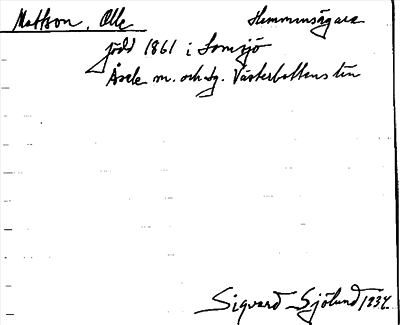 Mattson, Olle Hemmansägare
född 1861 i Lomsjö
Åsele m. och sg. Västerbottens län
Sigvard Sjölund 1934